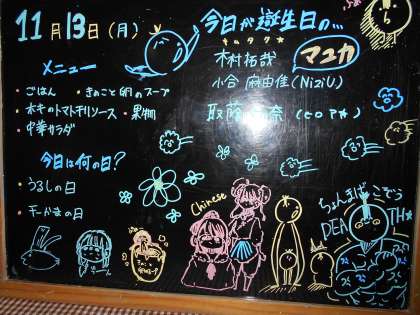 11月13日(月)
今日が誕生日の…
キムタク
木村拓哉
マユカ
小合 麻由佳(NiziU)
メニュー
・ごはん ・きのこと卵のスープ
のトマトチリソース ・果物
・中華サラダ
今日は何の日?
・うるしの日
の日
Chinese
ちょんまげ
こぞう
DEATH